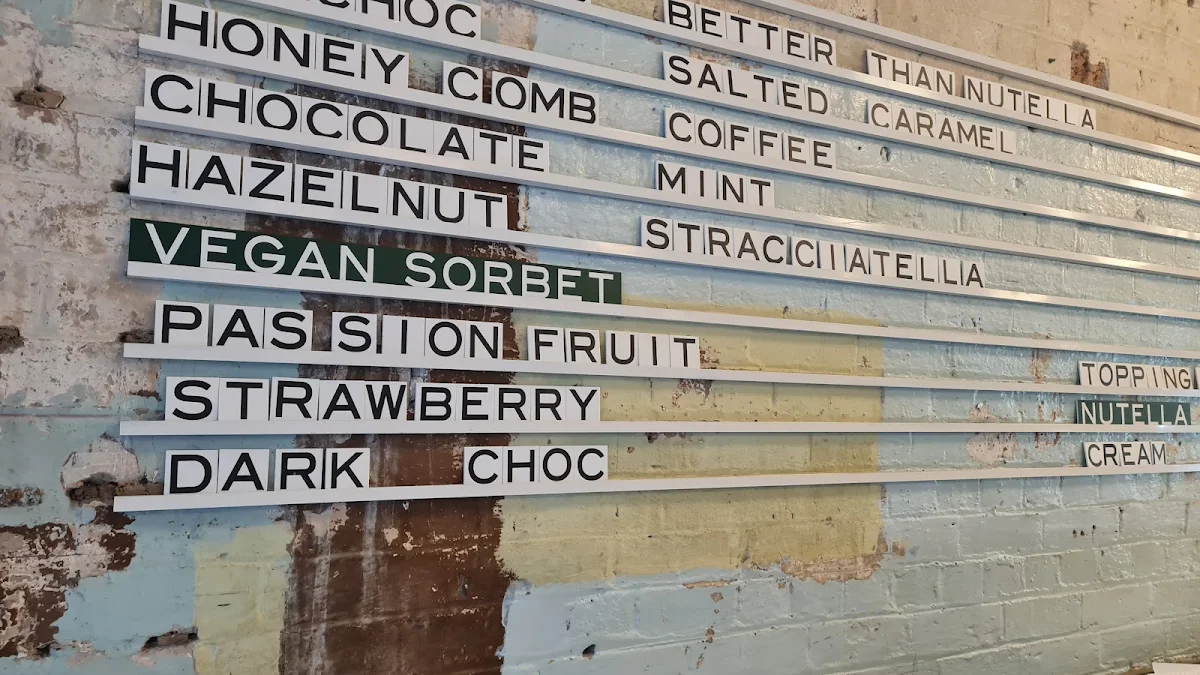 CHOC
HONEY COMB
CHOCOLATE
HAZELNUT
VEGAN SORBET
PASSION FRUIT
STRAWBERRY
DARK CHOC
BETTER THAN NUTELLA
SALTED CARAMEL
COFFEE
MINT
STRACCIATELLA
TOPPING
NUTELLA
CREAM